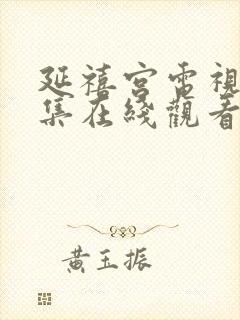 延禧宮電視
集在綫觀看
黃玉振